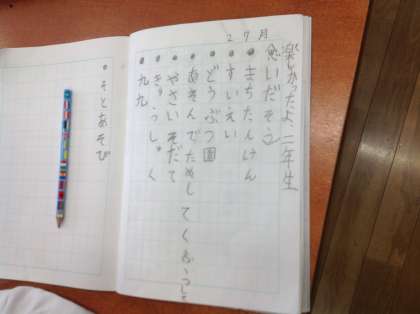 2 7月
楽しかったよ、二年生
思いだそう
●まちたんけん
●すいえい
●どうぶつ園
●あそんでためしてくふうして
●やさいそだて
●九九
●そとあそび